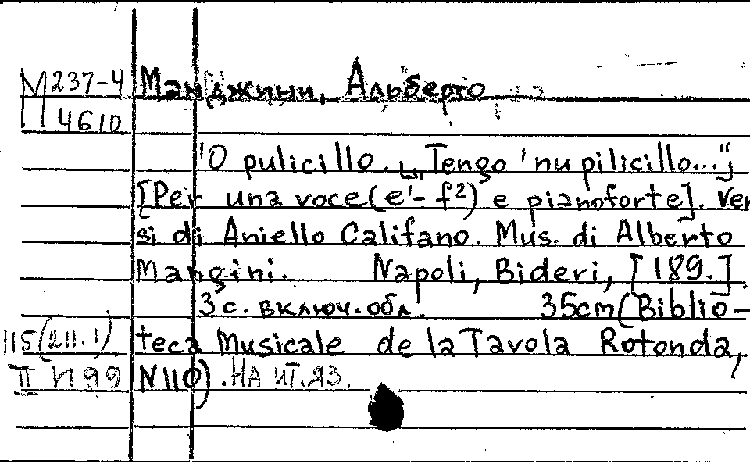 М237-4 Манджини, Альберто
4610
'O pulicillo. „Tengo 'nu pilicillo..."
[Per una voce (e'- f²) e pianoforte]. Ver
si di Aniello Califano. Mus. di Alberto
Mangini. Napoli, Bideri, [189.]
3 с. включ. обл. 35cm (Biblio-
115(211.1) teca Musicale de la Tavola Rotonda,
II N99 N110). НА ИТ. ЯЗ.